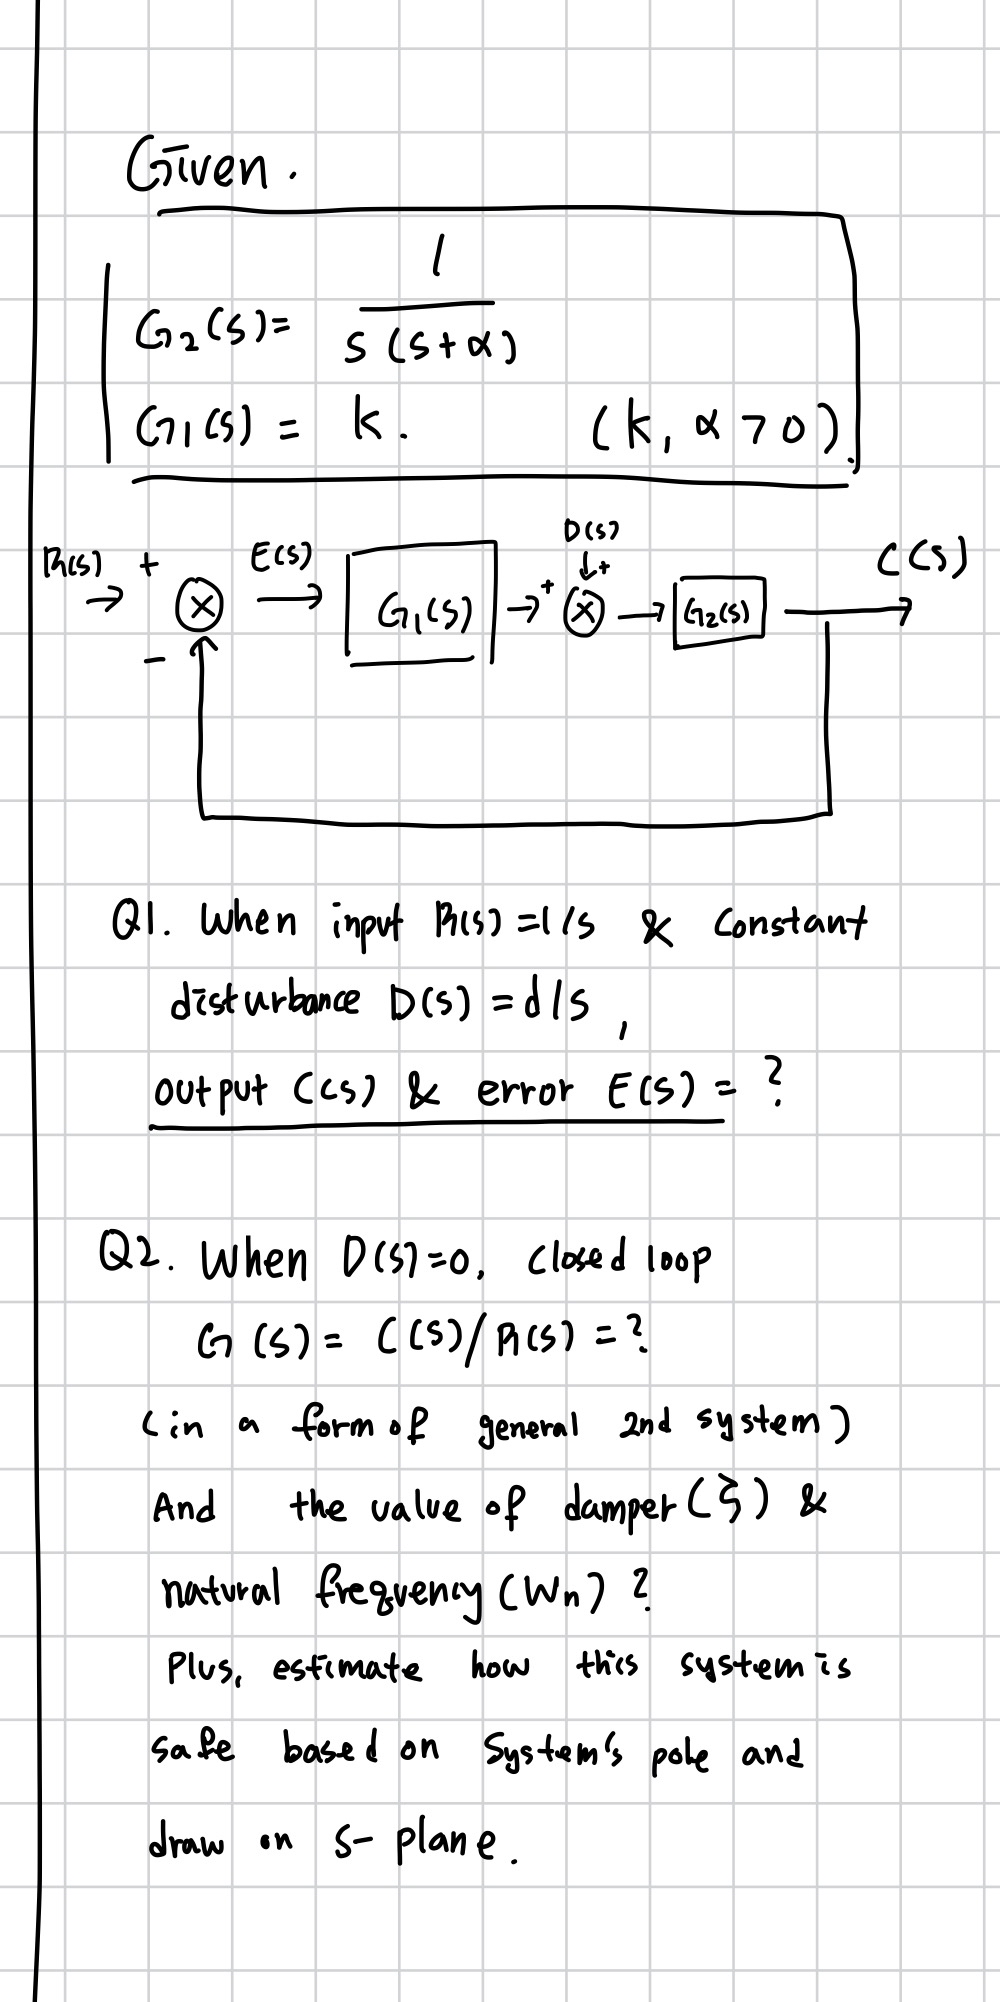 Given.
1
G₂(s) = s(s+α)
G₁(s) = k. (k, α > 0).
D(s)
R(s) + E(s) + C(s)
→ ⊗ → G₁(s) → + ⊗ → G₂(s) →
-
Q1. When input R(s) = 1/s & constant
disturbance D(s) = d/s,
output C(s) & error E(s) = ?
Q2. When D(s)=0, closed loop
G(s) = C(s)/R(s) = ?
(in a form of general 2nd system)
And the value of damper(ζ) &
natural frequency(Wn) ?
Plus, estimate how this system is
safe based on System's pole and
draw on s-plane.